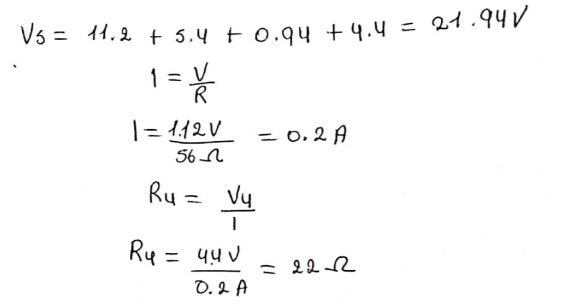 V5 = 11.2 + 5.4 + 0.94 + 4.4 = 21.94V
I = V/R
I = 1.12V/56Ω = 0.2A
R4 = V4/I
R4 = 4.4V/0.2A = 22Ω